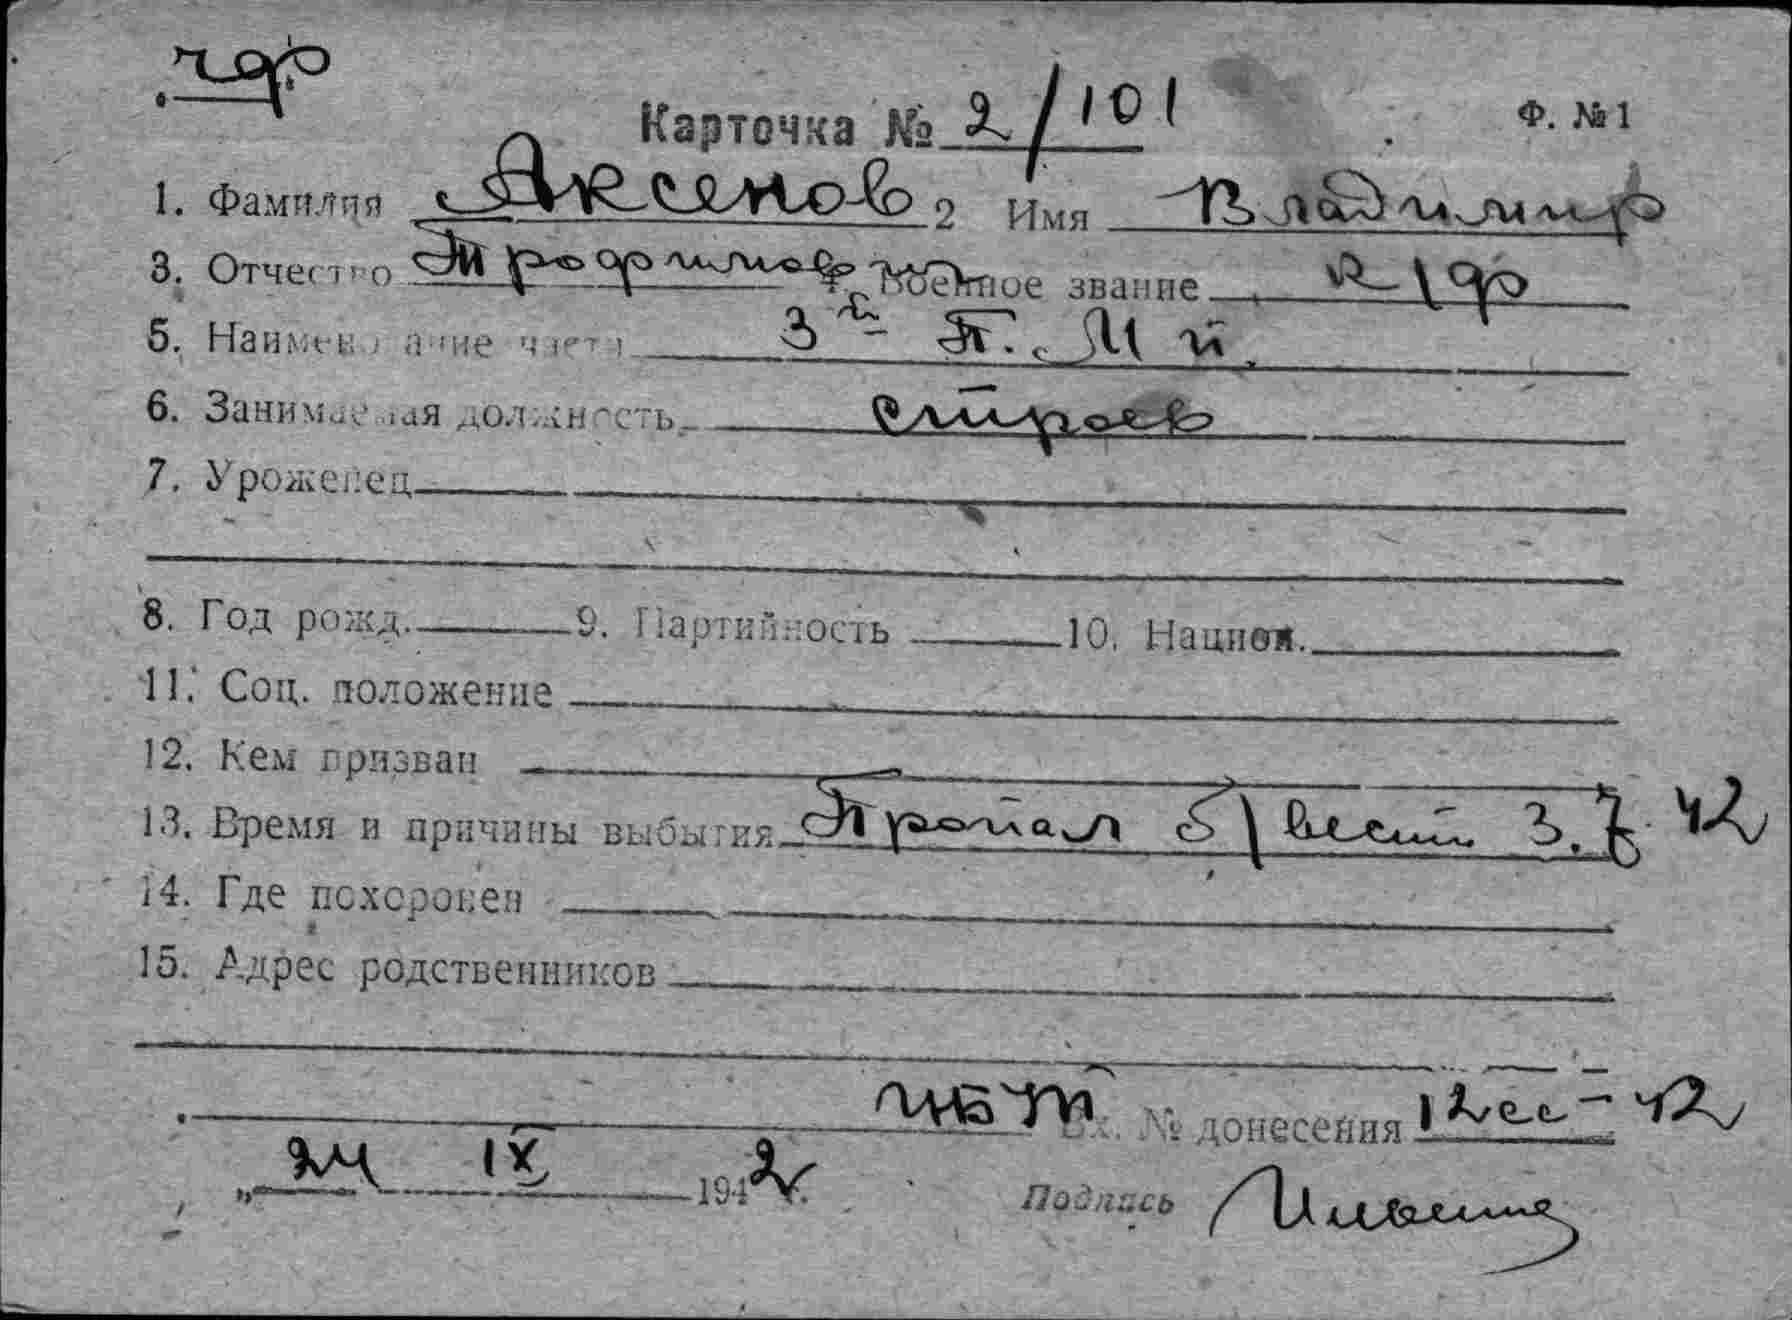 Карточка № 2/101 Ф. №1
1. Фамилия Аксенов 2 Имя Владимир
3. Отчество Трофимов 4. Военное звание к/ф
5. Наименование части 3й П.
6. Занимаемая должность строев
7. Уроженец
8. Год рожд. 9. Партийность 10. Национ.
11. Соц. положение
12. Кем призван
13. Время и причины выбытия Пропал б/вест 3.7 42
14. Где похоронен
15. Адрес родственников
Вх. № донесения 42
„24 IX 1942
Подпись